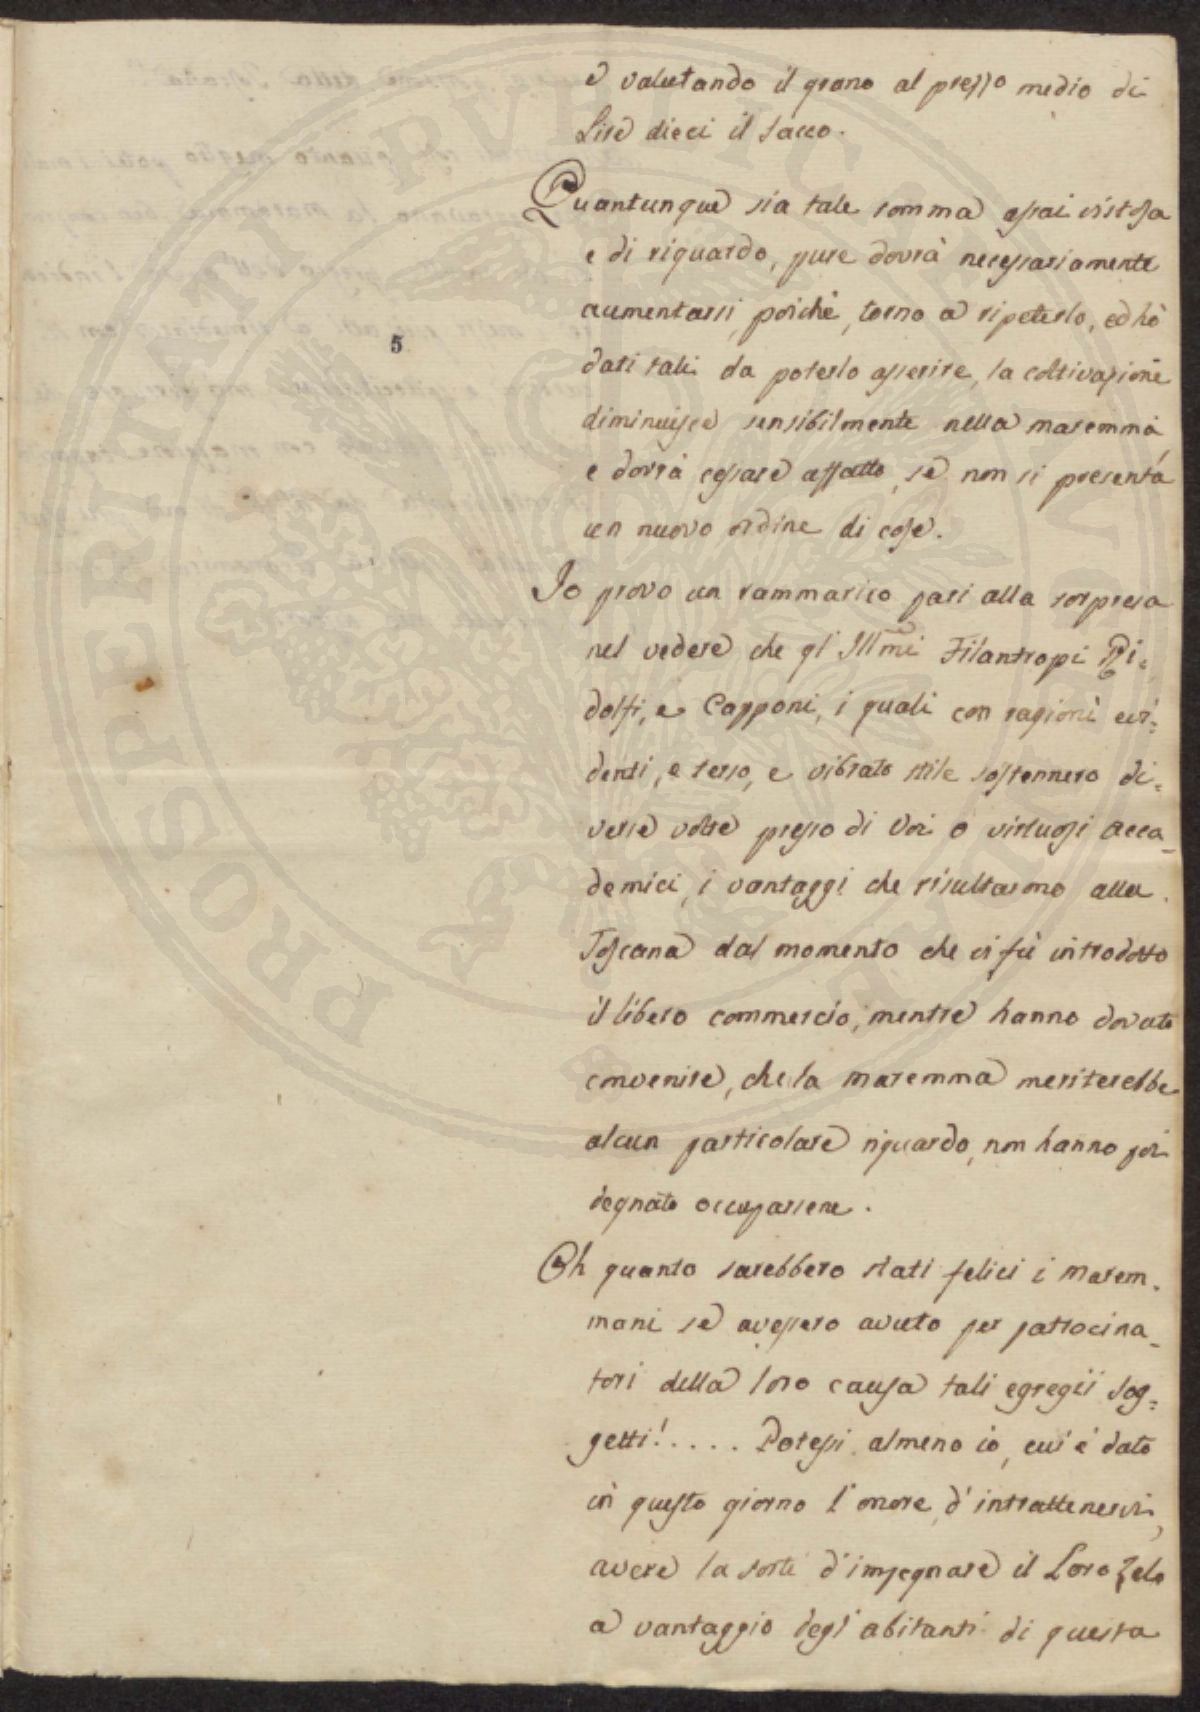 e valutando il grano al prezzo medio di
Lire dieci il sacco.
Quantunque sia tale somma assai vistosa
e di riguardo, pure dovrà necessariamente
aumentarsi, poichè, torno a ripeterlo, ed hò
dati tali da poterlo asserire, la coltivazione
diminuisce sensibilmente nella maremma
5
e dovrà cessare affatto, se non si presenta
un nuovo ordine di cose.
Io provo un rammarico pari alla sorpresa
nel vedere che gl'Illmi Filantropi Ri=
dolfi, e Capponi, i quali con ragioni evi=
denti, e terso, e vibrato stile sostennero di=
verse volte presso di Voi o virtuosi acca=
demici, i vantaggi che risultarono alla
Toscana dal momento che vi fù introdotto
il libero commercio, mentre hanno dovuto
convenire, che la maremma meriterebbe
alcun particolare riguardo, non hanno poi
degnato occuparsene.
Oh quanto sarebbero stati felici i marem=
mani se avessero avuto per patrocina=
tori della loro causa tali egregii sog=
getti!..... Potessi almeno io, cui è dato
in questo giorno l'onore d'intrattenervi,
avere la sorte d'impegnare il Loro Zelo
a vantaggio degl'abitanti di questa
PROSPERITATI PVBLICAE AVGENDAE